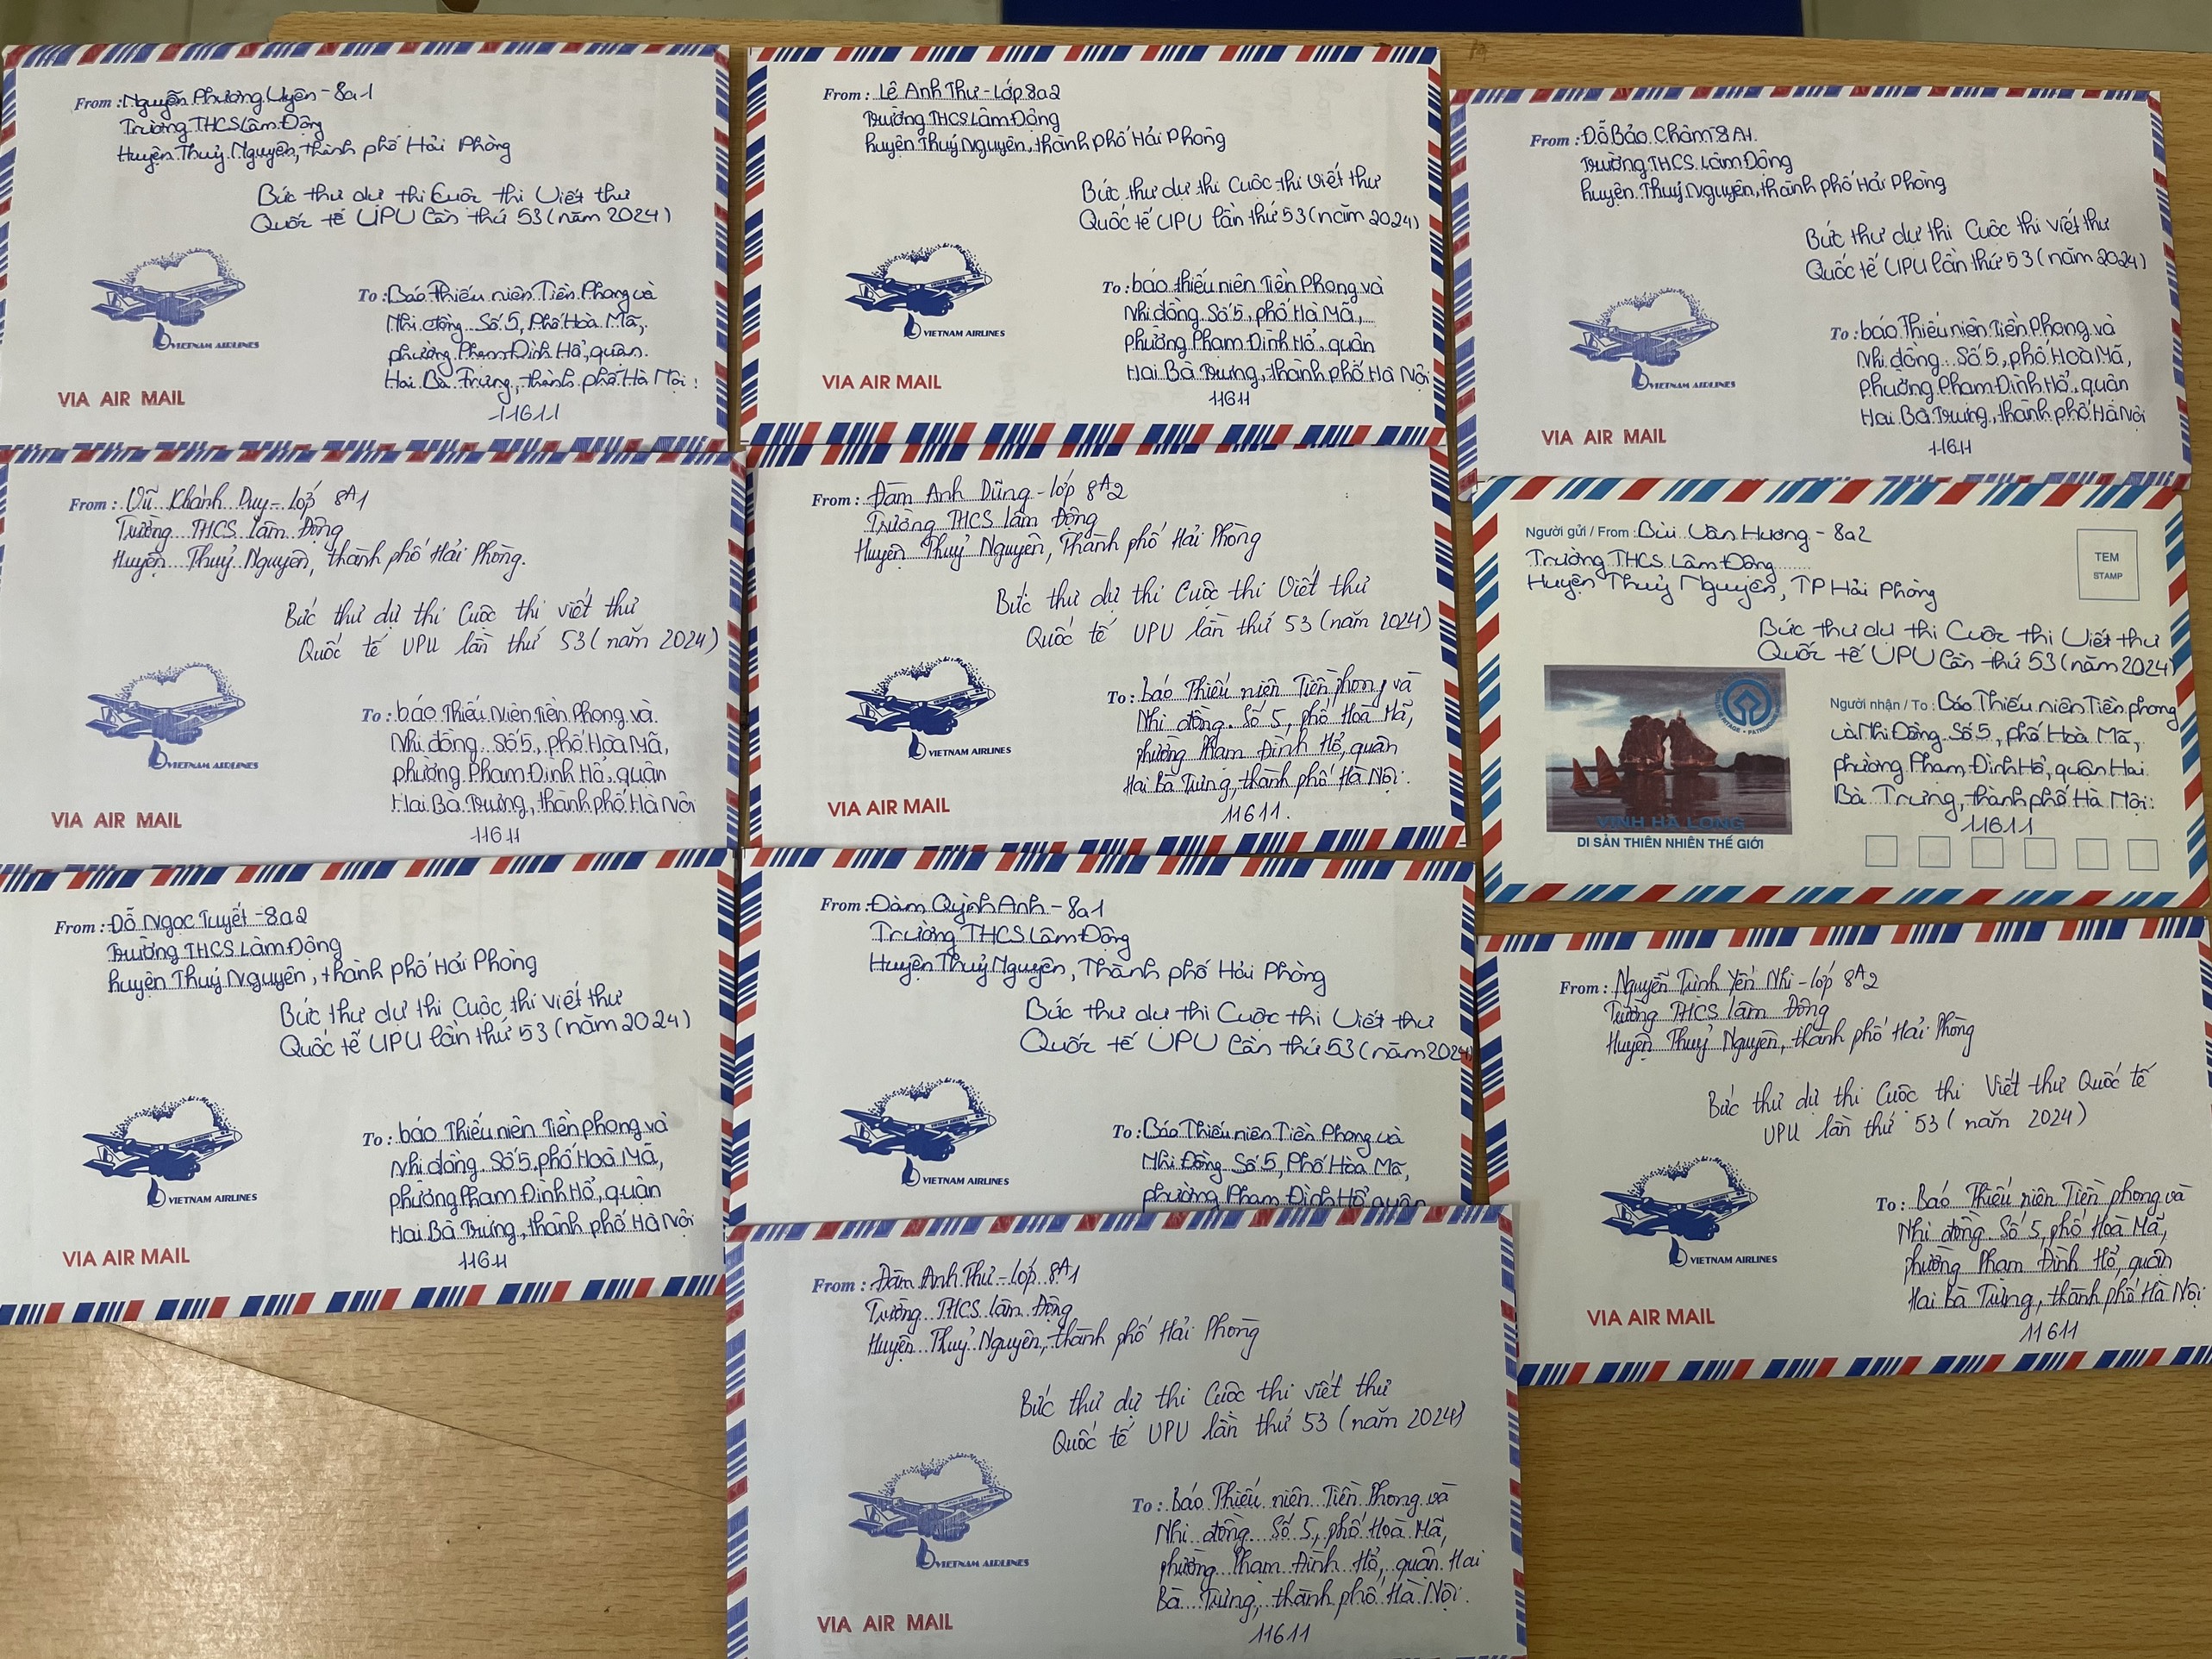 From : Nguyễn Phương Uyên - 8a1
Trường THCS Lâm Động
Huyện Thuỷ Nguyên, thành phố Hải Phòng
Bức thư dự thi Cuộc thi Viết thư
Quốc tế UPU Lần thứ 53 (năm 2024)
VIETNAM AIRLINES
To : Báo Thiếu niên Tiền Phong và
Nhi đồng. Số 5, Phố Hoà Mã,
phường Phạm Đình Hổ, quận
Hai Bà Trưng, thành phố Hà Nội :
11611
VIA AIR MAIL
From : Lê Anh Thư - Lớp 8a2
Trường THCS Lâm Động
huyện Thuỷ Nguyên, thành phố Hải Phòng
Bức thư dự thi Cuộc thi viết thư
Quốc tế UPU lần thứ 53 (năm 2024)
VIETNAM AIRLINES
To : báo thiếu niên Tiền Phong và
Nhi đồng. Số 5, phố Hà Mã,
phường Phạm Đình Hổ, quận
Hai Bà Trưng, thành phố Hà Nội
11611
VIA AIR MAIL
From : Đỗ Bảo Châm - 8A1.
Trường THCS Lâm Động
huyện Thuỷ Nguyên, thành phố Hải Phòng
Bức thư dự thi Cuộc thi viết thư
Quốc tế UPU lần thứ 53 (năm 2024)
VIETNAM AIRLINES
To : báo Thiếu niên Tiền Phong và
Nhi đồng. Số 5, phố Hoà Mã,
phường Phạm Đình Hổ, quận
Hai Bà Trưng, thành phố Hà Nội
11611
VIA AIR MAIL
From : Vũ Khánh Duy - lớp 8A1
Trường THCS Lâm Động
Huyện Thuỷ Nguyên, thành phố Hải Phòng.
Bức thư dự thi Cuộc thi viết thư
Quốc tế UPU lần thứ 53 (năm 2024)
VIETNAM AIRLINES
To : báo Thiếu Niên Tiền Phong và
Nhi đồng. Số 5, phố Hoà Mã,
phường Phạm Đình Hổ, quận
Hai Bà Trưng, thành phố Hà Nội
11611
VIA AIR MAIL
From : Đàm Anh Dũng - lớp 8A2
Trường THCS Lâm Động
Huyện Thuỷ Nguyên, Thành phố Hải Phòng
Bức thư dự thi Cuộc thi Viết thư
Quốc tế UPU lần thứ 53 (năm 2024)
VIETNAM AIRLINES
To : báo Thiếu niên Tiền phong và
Nhi đồng. Số 5, phố Hoà Mã,
phường Phạm Đình Hổ, quận
Hai Bà Trưng, thành phố Hà Nội.
11611.
VIA AIR MAIL
Người gửi / From : Bùi Vân Hương - 8a2
Trường THCS Lâm Động
Huyện Thuỷ Nguyên, TP Hải Phòng
TEM
STAMP
Bức thư dự thi Cuộc thi Viết thư
Quốc tế UPU Lần thứ 53 (năm 2024)
Người nhận / To : Báo Thiếu niên Tiền phong
và Nhi Đồng. Số 5, phố Hoà Mã,
phường Phạm Đình Hổ, quận Hai
Bà Trưng, thành phố Hà Nội:
11611
VỊNH HẠ LONG
DI SẢN THIÊN NHIÊN THẾ GIỚI
From : Đỗ Ngọc Tuyết - 8a2
Trường THCS Lâm Động
huyện Thuỷ Nguyên, thành phố Hải Phòng
Bức thư dự thi Cuộc thi viết thư
Quốc tế UPU lần thứ 53 (năm 2024)
VIETNAM AIRLINES
To : báo Thiếu niên Tiền phong và
Nhi đồng. Số 5, phố Hoà Mã,
phường Phạm Đình Hổ, quận
Hai Bà Trưng, thành phố Hà Nội
11611
VIA AIR MAIL
From : Đàm Quỳnh Anh - 8a1
Trường THCS Lâm Động
Huyện Thuỷ Nguyên, Thành phố Hải Phòng
Bức thư dự thi Cuộc thi Viết thư
Quốc tế UPU Lần thứ 53 (năm 2024)
VIETNAM AIRLINES
To : Báo Thiếu niên Tiền Phong và
Nhi Đồng. Số 5, Phố Hòa Mã,
phường Phạm Đình Hổ, quận
From : Nguyễn Trình Yến Nhi - lớp 8A2
Trường THCS Lâm Động
Huyện Thuỷ Nguyên, thành phố Hải Phòng
Bức thư dự thi Cuộc thi Viết thư Quốc tế
UPU lần thứ 53 (năm 2024)
VIETNAM AIRLINES
To : Báo Thiếu niên Tiền phong và
Nhi đồng. Số 5, phố Hoà Mã,
phường Phạm Đình Hổ, quận
Hai Bà Trưng, thành phố Hà Nội.
11611
VIA AIR MAIL
From : Đàm Anh Thư - lớp 8A1
Trường THCS Lâm Động
Huyện Thuỷ Nguyên, thành phố Hải Phòng
Bức thư dự thi Cuộc thi viết thư
Quốc tế UPU lần thứ 53 (năm 2024)
VIETNAM AIRLINES
To : Báo Thiếu niên Tiền Phong và
Nhi đồng. Số 5, phố Hoà Mã,
phường Phạm Đình Hổ, quận Hai
Bà Trưng, thành phố Hà Nội.
11611
VIA AIR MAIL